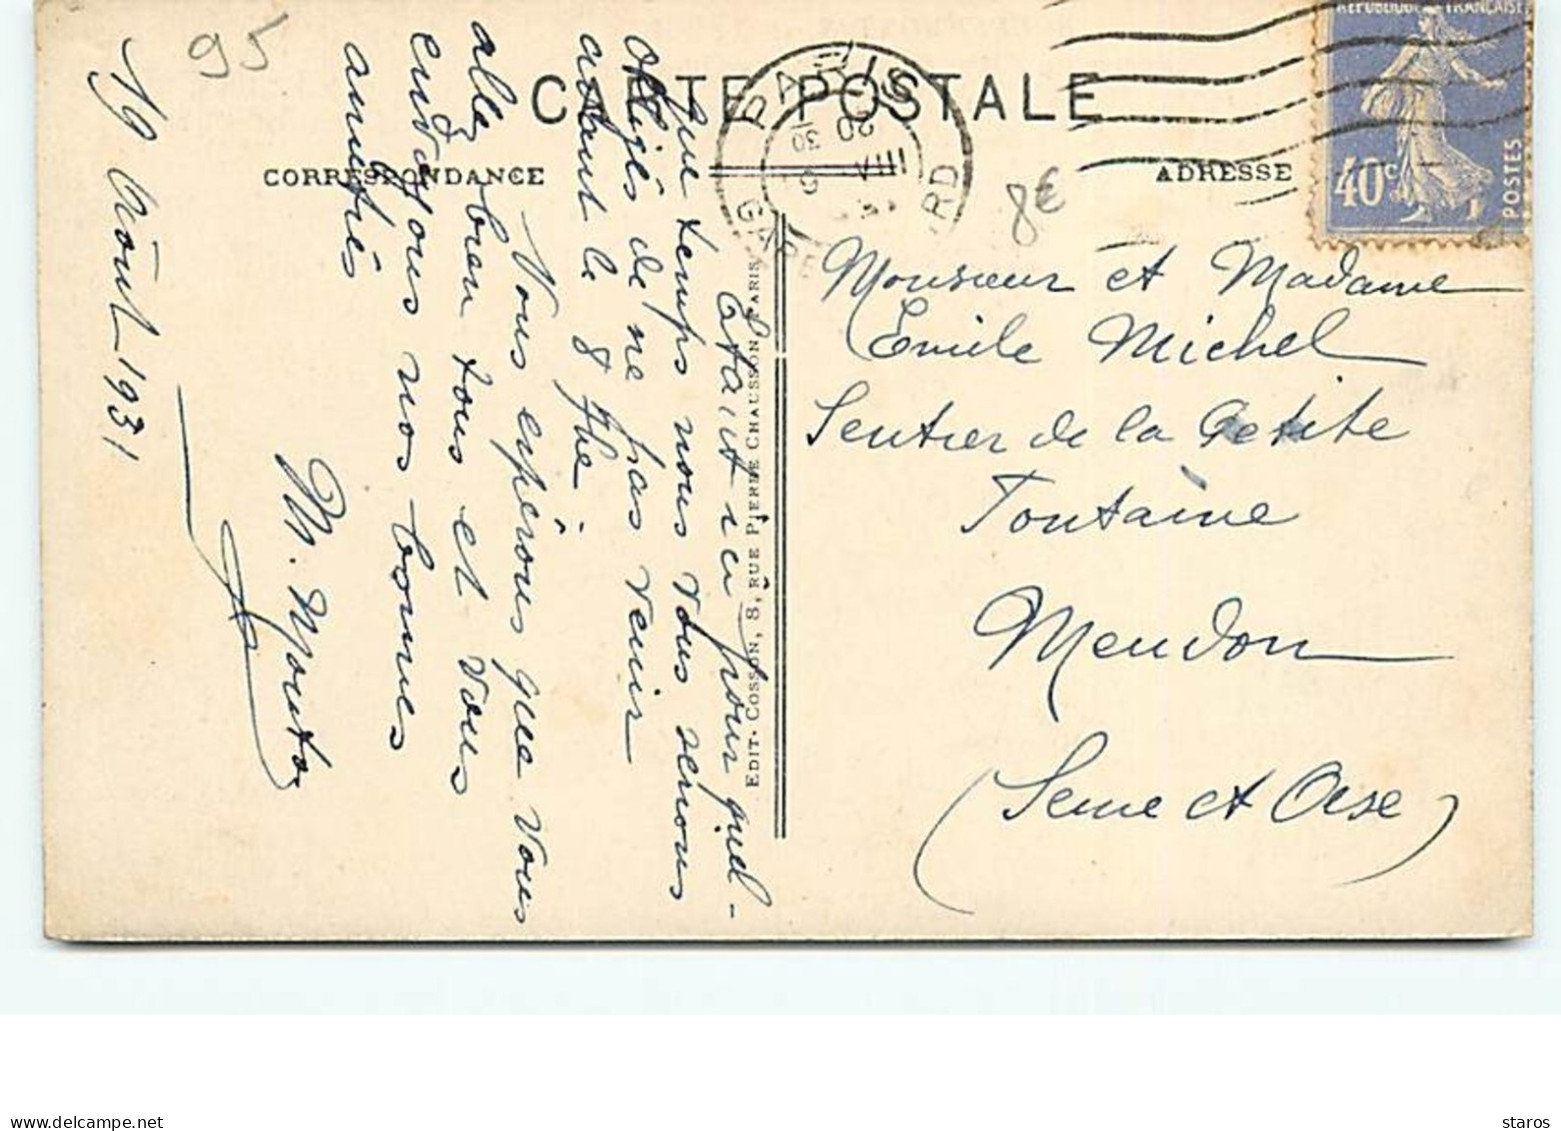 CARTE POSTALE
CORRESPONDANCE
ADRESSE
RÉPUBLIQUE FRANÇAISE
40c
POSTES
PARIS
GARE
RD
95
8€
19 Août 1931
Étant ici pour quel-
que temps nous vous serions
obligés de ne pas venir
avant le 8
Vous espérons que vous
allez bien tous et vous
envoyons nos bonnes
amitiés
M.
Monsieur et Madame
Emile Michel
Sentier de la Petite
Fontaine
Meudon
(Seine et Oise)
EDIT. COSSON, 8, RUE PIERRE CHAUSSON, PARIS
staros